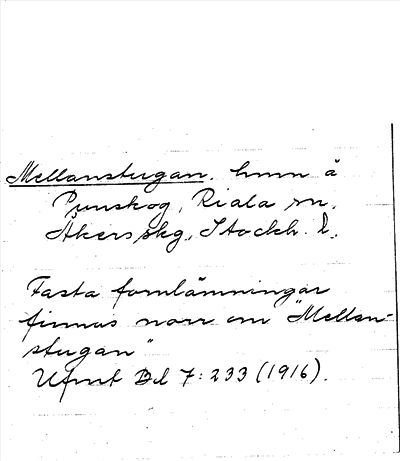 Mellanstugan. hmn å
Punskog, Riala sn,
Åkers skg., Stockh. l.
Fasta fornlämningar
finnas norr om "Mellan-
stugan"
Ufmt Bd 7:233 (1916).